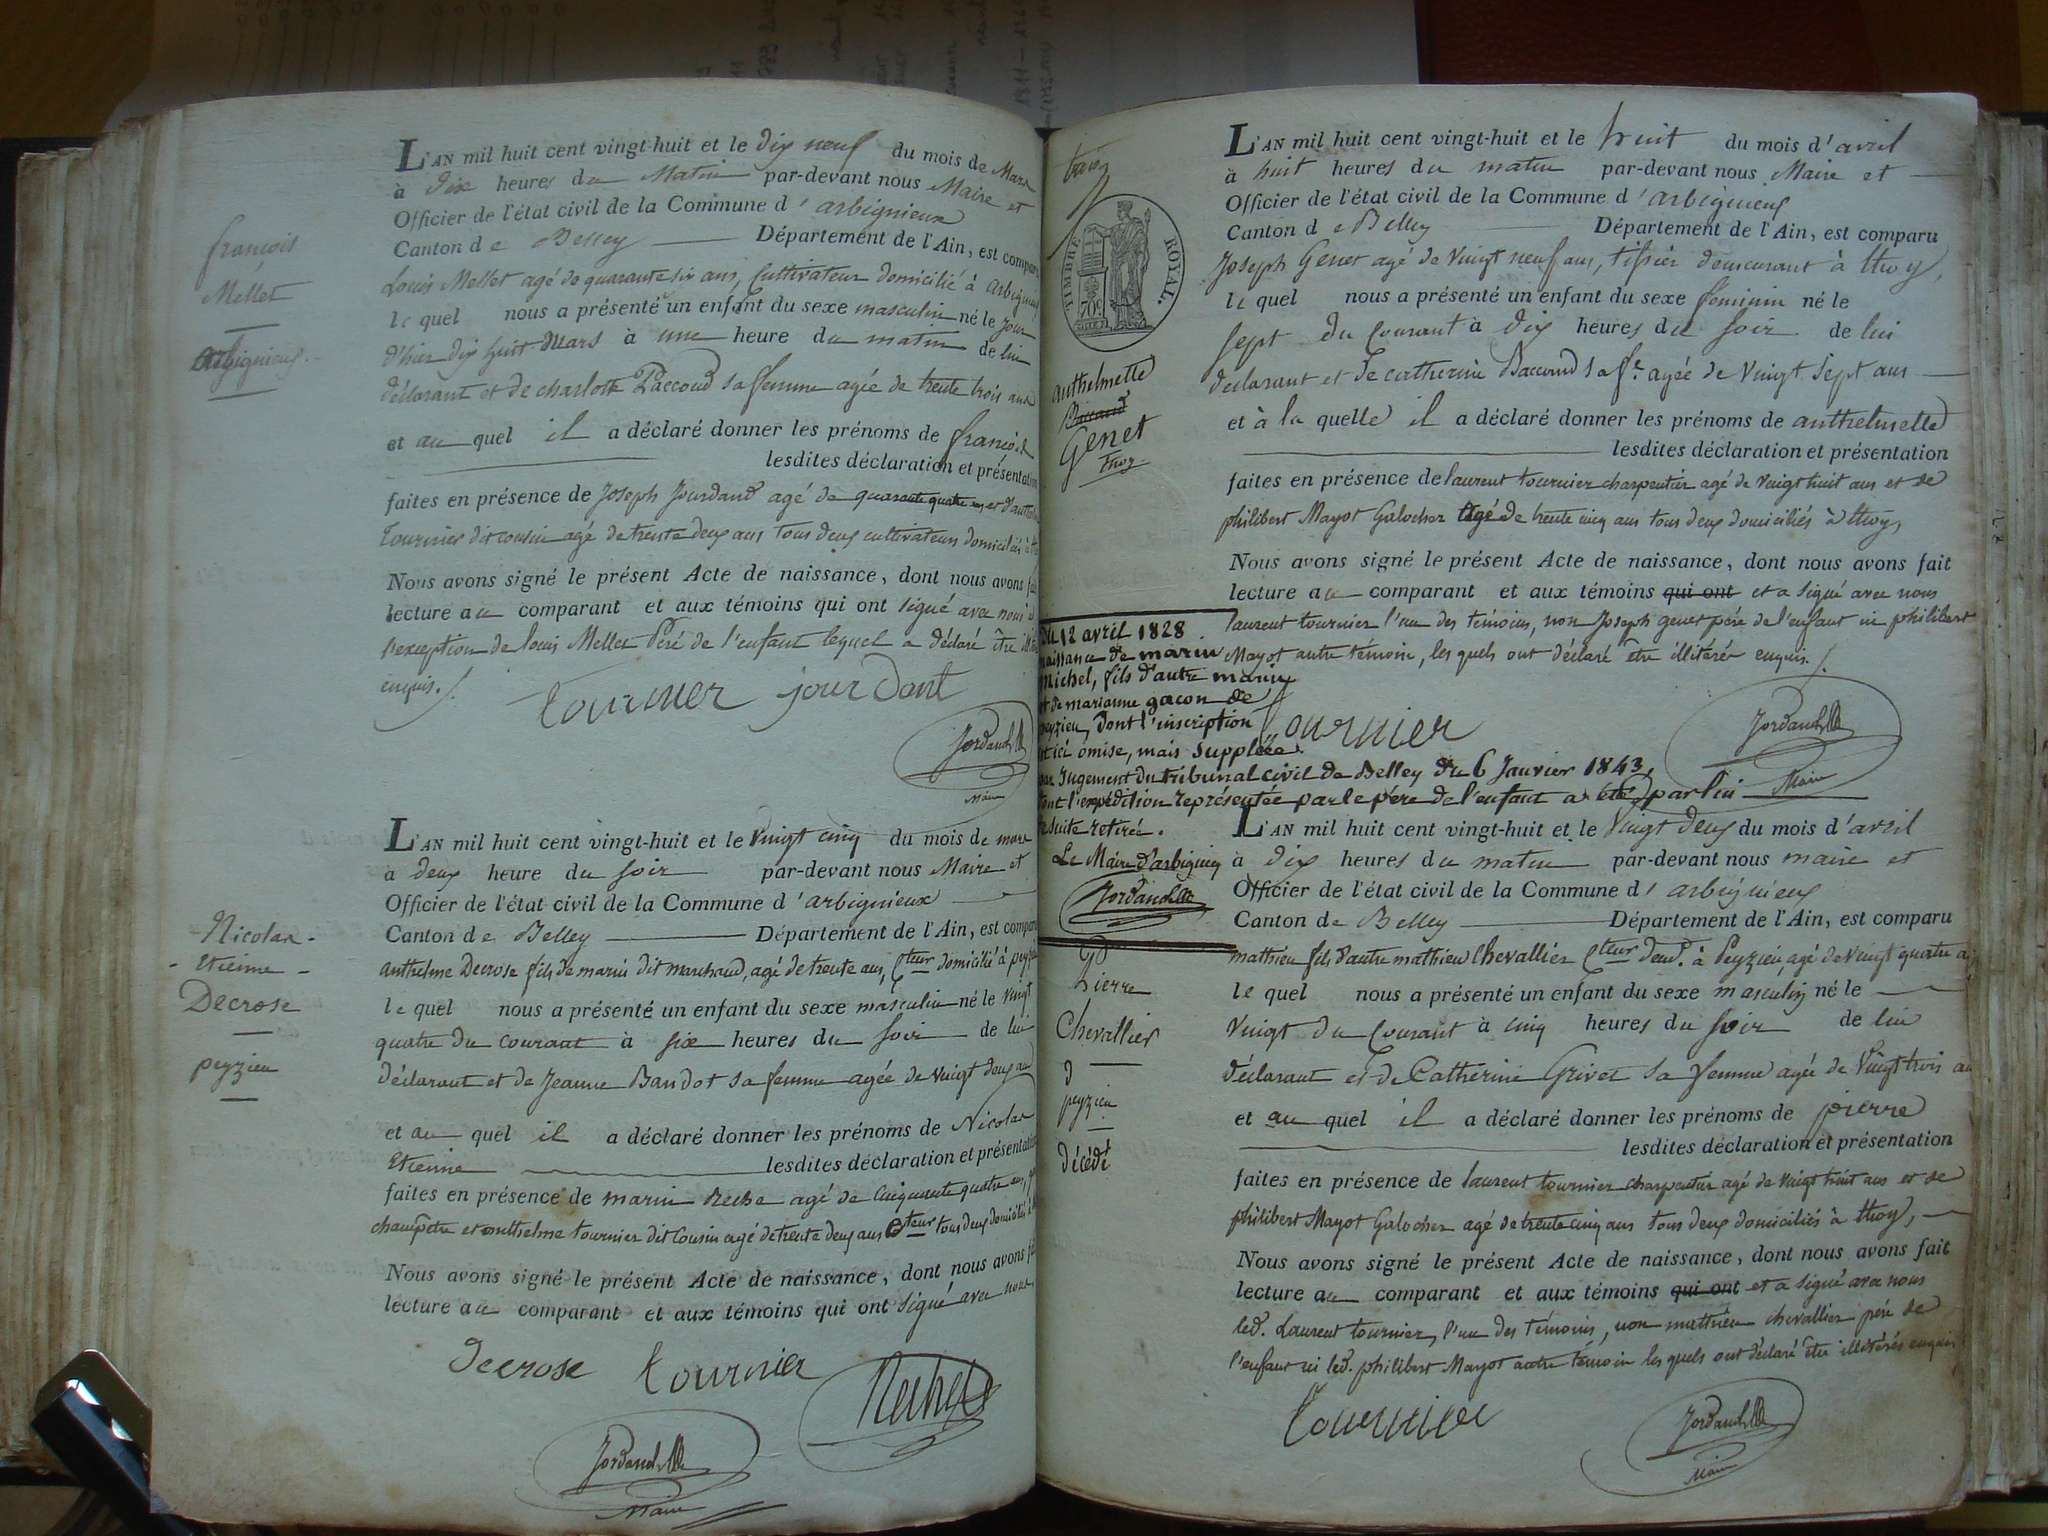 L'AN mil huit cent vingt-huit et le dix neuf du mois de Mars
à dix heures du Matin par-devant nous Maire et
Officier de l'état civil de la Commune d'arbignieux
Canton de Belley Département de l'Ain, est comparu
Louis Mellet agé de quarante six ans, Cultivateur domicilié à arbignieux
le quel nous a présenté un enfant du sexe masculin né le jour
d'hier dix huit Mars à une heure du matin de lui
déclarant et de charlotte Paccoud sa femme agée de trente trois ans
et au quel il a déclaré donner les prénoms de françois
lesdites déclaration et présentation
faites en présence de Joseph Jourdand agé de quarante quatre ans et d'anthelme
Tournier dit cousin agé de trente deux ans tous deux cultivateurs domiciliés à
Nous avons signé le présent Acte de naissance, dont nous avons fait
lecture au comparant et aux témoins qui ont signé avec nous à
l'exception de louis Mellet Père de l'enfant lequel a déclaré être
enquis ./.
Tournier jourdant
Jordand
Maire
françois
Mellet
arbignieux.
L'AN mil huit cent vingt-huit et le vingt cinq du mois de mars
à deux heure du soir par-devant nous Maire et
Officier de l'état civil de la Commune d'arbignieux
Canton de Belley Département de l'Ain, est comparu
anthelme Decrose fils de marin dit marchand, agé de trente ans, Cteur domicilié à peyzieu
le quel nous a présenté un enfant du sexe masculin né le vingt
quatre du courant à six heures du soir de lui
déclarant et de Jeanne Bandot sa femme agée de vingt deux ans
et au quel il a déclaré donner les prénoms de Nicolas
Etienne lesdites déclaration et présentation
faites en présence de marin Reche agé de cinquante quatre ans,
champêtre et anthelme tournier dit Cousin agé de trente deux ans Cteur tous deux domiciliés à
Nous avons signé le présent Acte de naissance, dont nous avons fait
lecture au comparant et aux témoins qui ont signé avec nous
Decrose tournier
Jordand
Maire
Nicolas
Etienne
Decrose
peyzieu
L'AN mil huit cent vingt-huit et le huit du mois d'avril
à huit heures du matin par-devant nous Maire et
Officier de l'état civil de la Commune d'arbignieux
Canton de Belley Département de l'Ain, est comparu
Joseph Genet agé de vingt neuf ans, tissier demeurant à thoy,
le quel nous a présenté un enfant du sexe féminin né le
sept du Courant à dix heures du soir de lui
déclarant et de catherine Baccoud sa fe. agée de vingt sept ans
et à la quelle il a déclaré donner les prénoms de anthelmette
lesdites déclaration et présentation
faites en présence de laurent tournier charpentier agé de vingt huit ans et de
philibert Mayot Galocher agé de trente cinq ans tous deux domiciliés à thoy,
Nous avons signé le présent Acte de naissance, dont nous avons fait
lecture au comparant et aux témoins qui ont et a signé avec nous
laurent tournier l'un des témoins, non Joseph genet père de l'enfant ni philibert
Mayot autre témoin, les quels ont déclaré être illitérés enquis ./.
Tournier
Jordand
Maire
TIMBRE ROYAL.
70c
anthelmette
Genet
thoy
du 12 avril 1828
naissance de marin
Michel, fils d'autre marin
et de marianne gacon de
peyzieu, dont l'inscription
est ici omise, mais suppléée
par Jugement du tribunal civil de Belley du 6 Janvier 1843,
dont l'expédition représentée par le père de l'enfant a été par lui
ensuite retirée.
Le Maire d'arbignieu
Jordand
L'AN mil huit cent vingt-huit et le vingt deux du mois d'avril
à dix heures du matin par-devant nous maire et
Officier de l'état civil de la Commune d'arbignieux
Canton de Belley Département de l'Ain, est comparu
mathieu fils d'autre mathieu Chevallier Cteur demt. à Peyzieu, agé de vingt quatre
le quel nous a présenté un enfant du sexe masculin né le
vingt du Courant à cinq heures du soir de lui
déclarant et de Catherine Grivet sa femme agée de vingt trois ans
et au quel il a déclaré donner les prénoms de pierre
lesdites déclaration et présentation
faites en présence de laurent tournier charpentier agé de vingt huit ans et de
philibert Mayot Galocher agé de trente cinq ans tous deux domiciliés à thoy,
Nous avons signé le présent Acte de naissance, dont nous avons fait
lecture au comparant et aux témoins qui ont et a signé avec nous
led. Laurent tournier, l'un des témoins, non mathieu chevallier père de
l'enfant ni led. philibert Mayot autre témoin les quels ont déclaré être illitérés enquis
Tournier
Jordand
Maire
Pierre
Chevallier
d
peyzieu
décédé